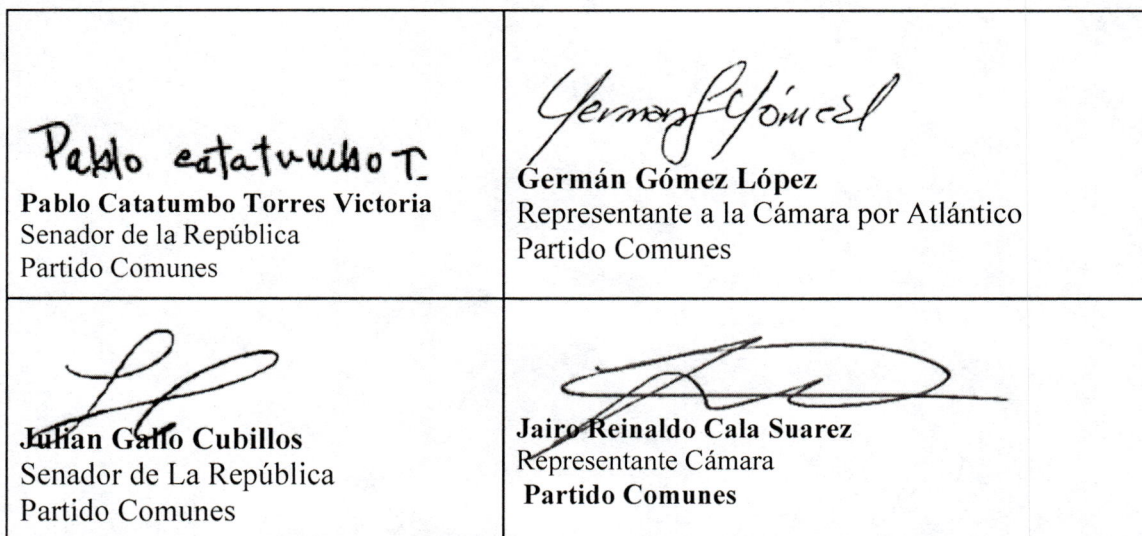 Pablo catatumbo T.
Pablo Catatumbo Torres Victoria
Senador de la República
Partido Comunes
Germán Gómez López
Representante a la Cámara por Atlántico
Partido Comunes
Julian Gallo Cubillos
Senador de La República
Partido Comunes
Jairo Reinaldo Cala Suarez
Representante Cámara
Partido Comunes